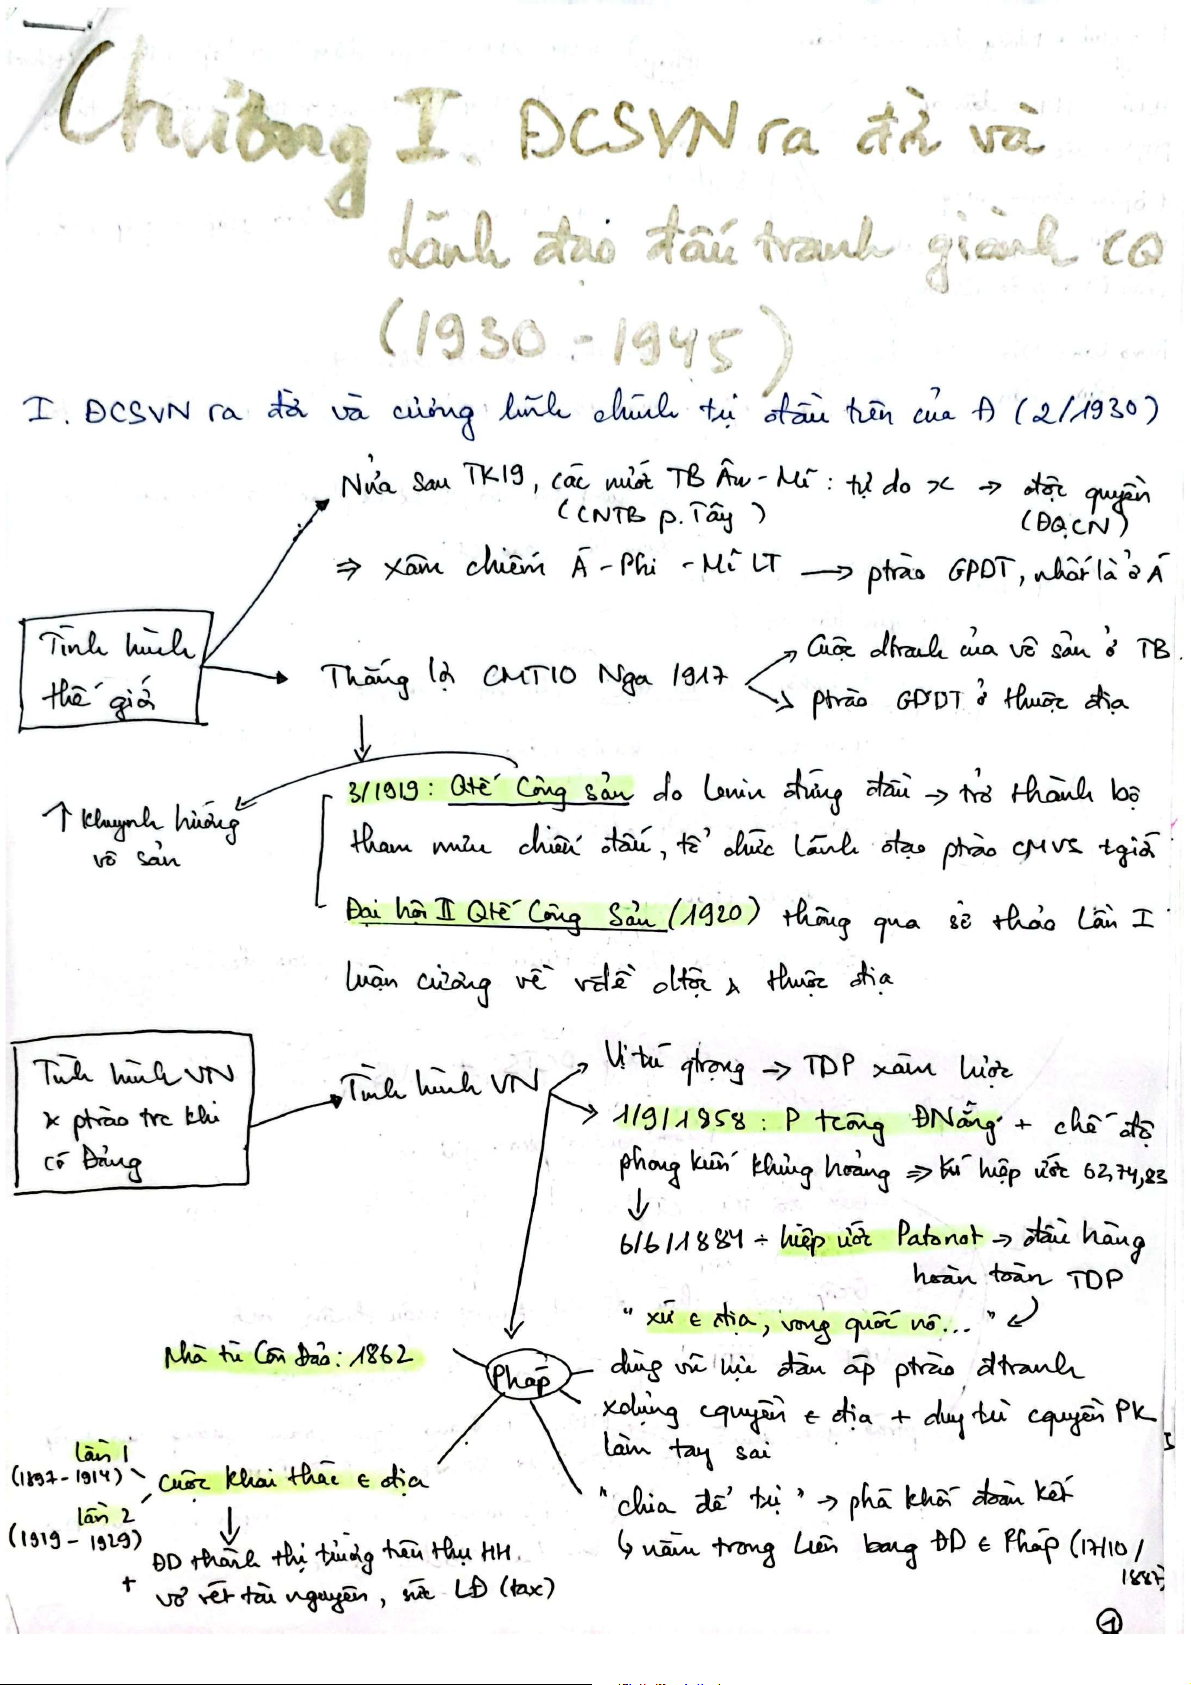 Chương I. ĐCSVN ra đời và
lãnh đạo đấu tranh giành CQ
(1930-1945)
I. ĐCSVN ra đời và cương lĩnh chính trị đầu tiên của Đ (2/1930)
Nửa sau TK19, các nước TB Âu-Mĩ: tự do x → độc quyền
(CNTB p.Tây) (ĐQCN)
⇒ xâm chiếm Á-Phi-Mĩ LT → ptrào GPDT, nhất là ở Á
Tình hình
thế giới
Thắng lợi CMT10 Nga 1917
Cuộc đtranh của vô sản ở TB
ptrào GPDT ở thuộc địa
3/1919: Qtế Cộng sản do Lenin đứng đầu → trở thành bộ
tham mưu chiến đấu, tổ chức lãnh đạo ptrào CMVS tgiới
↑ khuynh hướng
vô sản
Đại hội II Qtế Cộng Sản (1920) thông qua sơ thảo lần I
luận cương về vđề dtộc & thuộc địa
Tình hình VN
& ptrào trc khi
có Đảng
Tình hình VN
Vị trí qtrọng → TDP xâm lược
1/9/1858: P tcông ĐNẵng + chế độ
phong kiến khủng hoảng ⇒ kí hiệp ước 62,74,83
6/6/1884 ÷ hiệp ước Patonot → đầu hàng
hoàn toàn TDP
"xứ ∈ địa, vong quốc nô..."
Nhà tù Côn Đảo: 1862
Pháp
dùng vũ lực đàn áp ptrào đtranh
xdựng cquyền ∈ địa + duy trì cquyền PK
làm tay sai
"chia để trị" → phá khối đoàn kết
↳ nằm trong Liên bang ĐD ∈ Pháp (17/10/
1887)
lần 1
(1897-1914)
cuộc khai thác ∈ địa
lần 2
(1919-1929)
ĐD thành thị trường tiêu thụ HH
+ vơ vét tài nguyên, sức LĐ (tax)
1